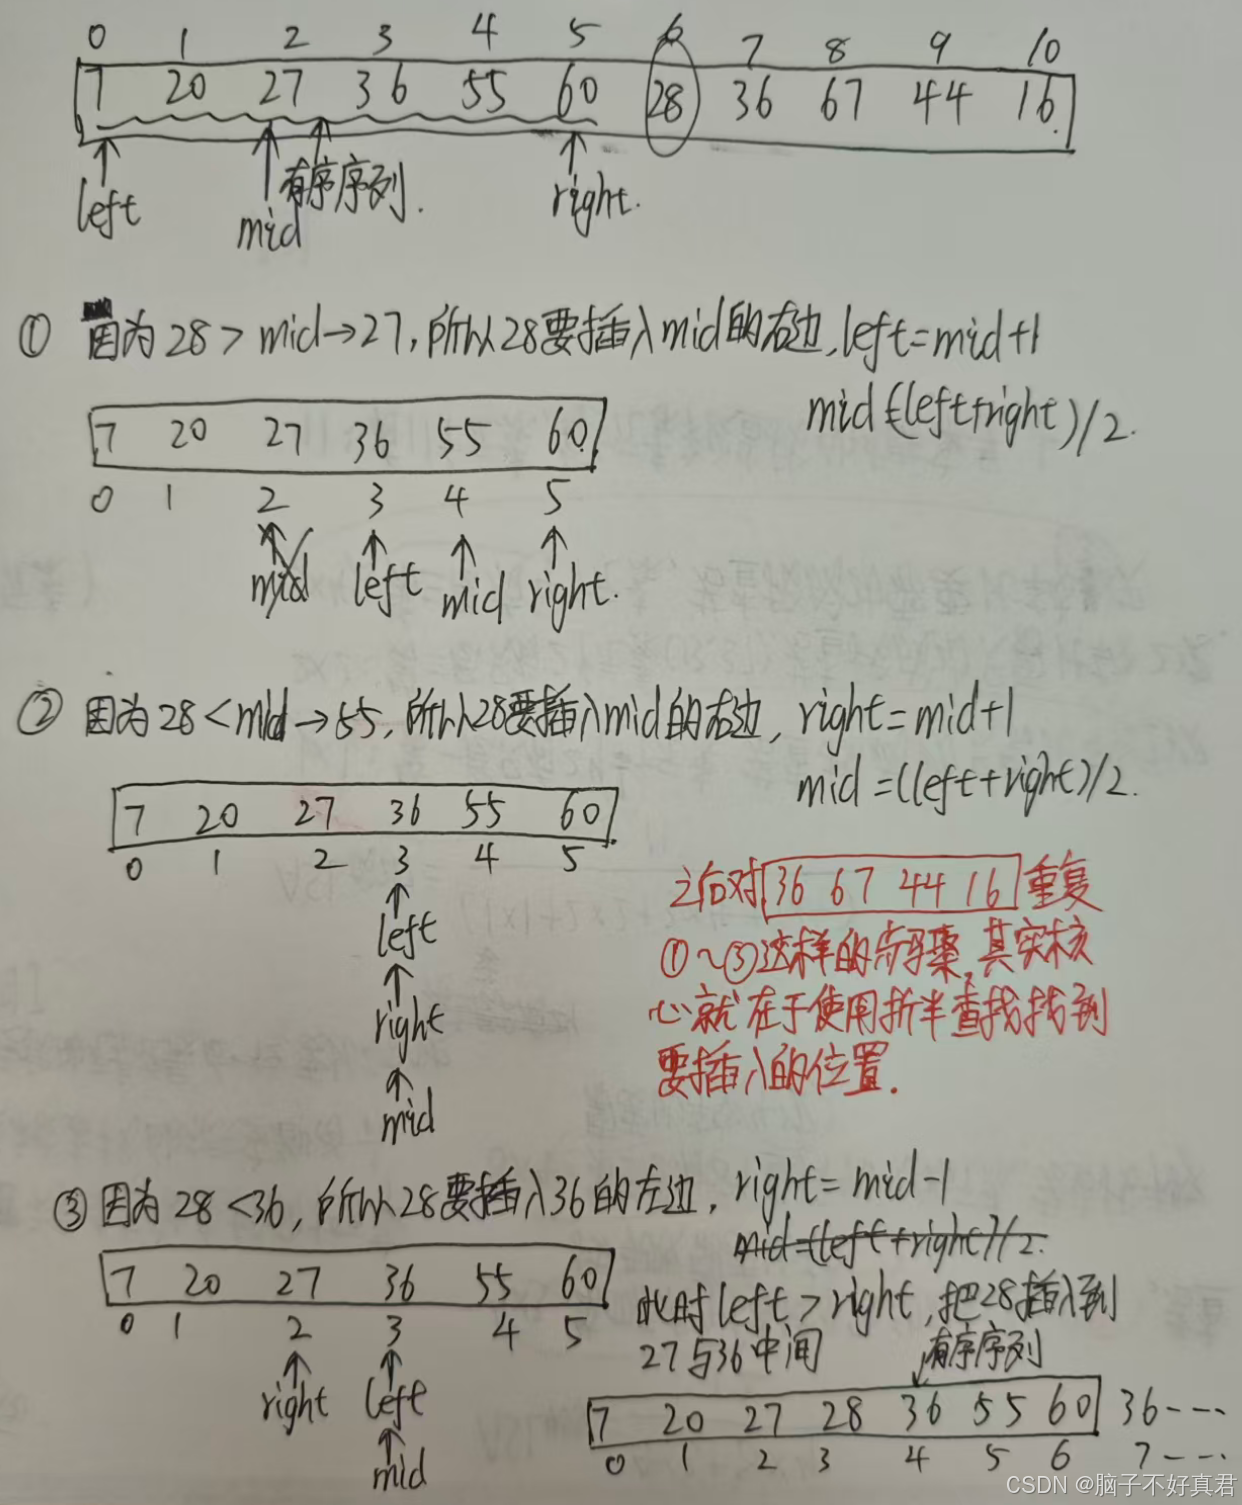 0 1 2 3 4 5 6 7 8 9 10
7 20 27 36 55 60 28 36 67 44 16
left mid 有序序列. right.
① 因为28>mid→27,所以28要插入mid的右边,left=mid+1
mid=(left+right)/2.
7 20 27 36 55 60
0 1 2 3 4 5
mid left mid right.
② 因为28<mid→55,所以28要插入mid的右边,right=mid+1
mid=(left+right)/2.
7 20 27 36 55 60
0 1 2 3 4 5
left
right
mid
之后对 36 67 44 16 重复
①~③这样的步骤,其实核
心就在于使用折半查找找到
要插入的位置.
③ 因为28<36,所以28要插入36的左边,right=mid-1
mid=(left+right)/2.
7 20 27 36 55 60
0 1 2 3 4 5
right left
mid
此时left>right,把28插入到
27与36中间
有序序列
7 20 27 28 36 55 60 36---
0 1 2 3 4 5 6 7---
CSDN @脑子不好真君